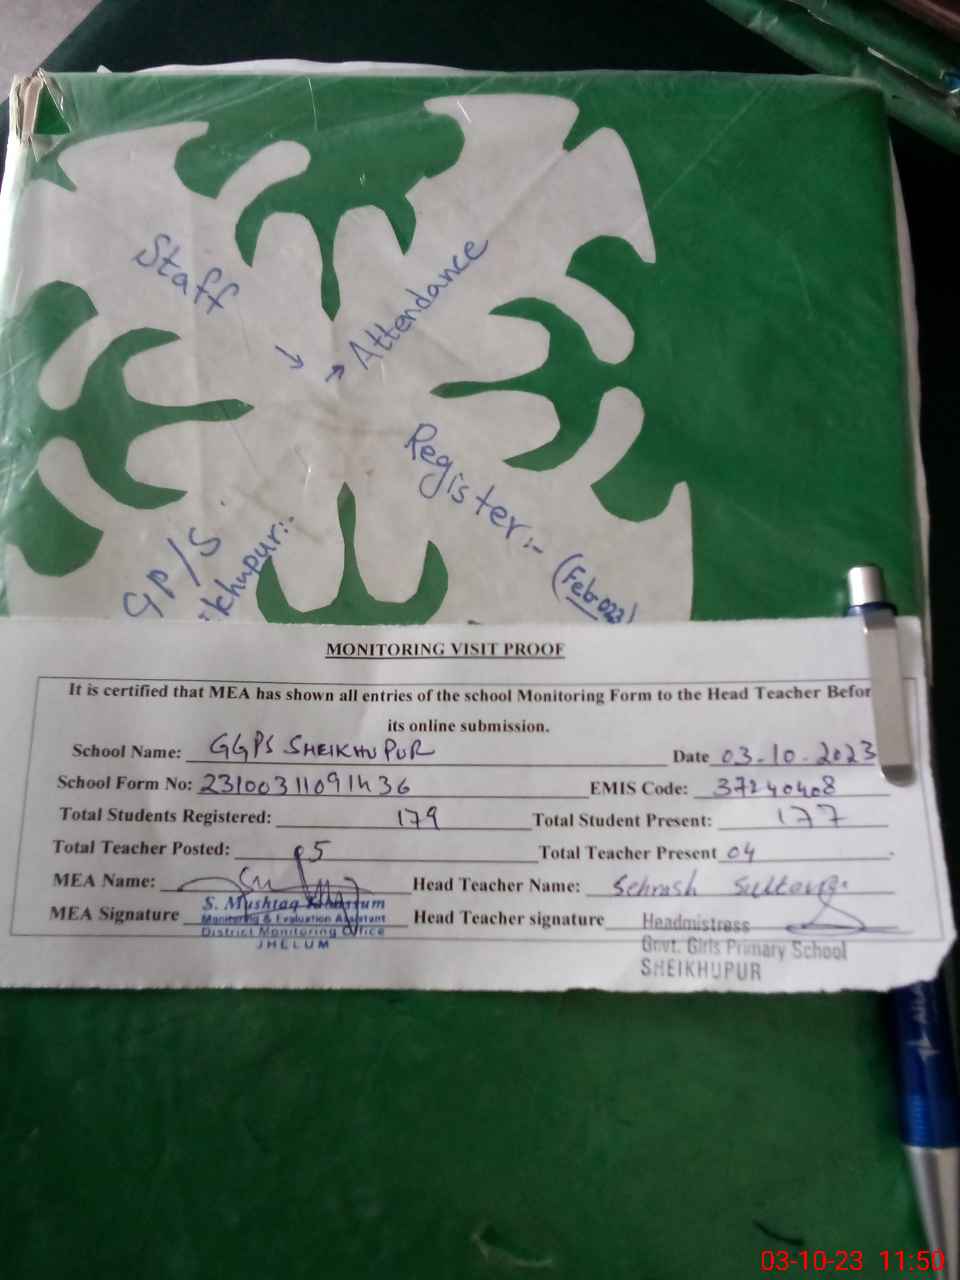 Staff
↓
↗ Attendance
Register:- (Feb-023)
GP/S
ikhupur:-
MONITORING VISIT PROOF
It is certified that MEA has shown all entries of the school Monitoring Form to the Head Teacher Befor
its online submission.
School Name: GGPS SHEIKHUPUR Date 03-10-2023
School Form No: 231003110911436 EMIS Code: 37240408
Total Students Registered: 179 Total Student Present: 177
Total Teacher Posted: 05 Total Teacher Present 04
MEA Name: Head Teacher Name: Sehrash Sultana
MEA Signature Head Teacher signature
S. Mushtaq
Monitoring & Evaluation Assistant
District Monitoring Office
JHELUM
Headmistress
Govt. Girls Primary School
SHEIKHUPUR
03-10-23 11:50